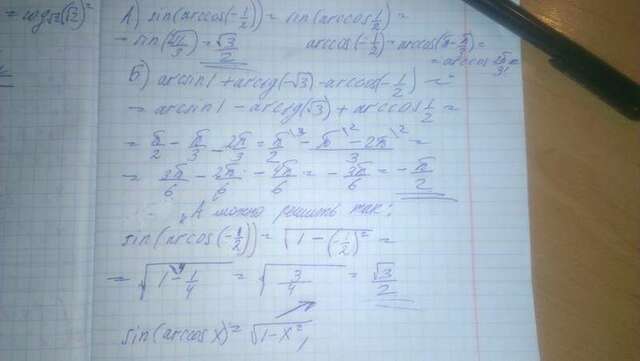 = log√2(√2)²
А) sin(arccos(-1/2)) = sin(arccos 1/2) =
= sin(2π/3) = √3/2
arccos(-1/2) = arccos(π - π/3) =
= arccos 2π/3
Б) arcsin1 + arcctg(-√3) - arccos(-1/2) =
= arcsin1 - arcctg(√3) + arccos 1/2 =
= π/2 - π/3 - 2π/3 = π/2 \3 - π \2 - 2π \2/3 =
= 3π/6 - 2π/6 - 4π/6 = - 3π/6 = - π/2
А можно решить так:
sin(arccos(-1/2)) = √(1 - (-1/2)²) =
= √(1 - 1/4) = √(3/4) = √3/2
sin(arccos x) = √(1-x²),